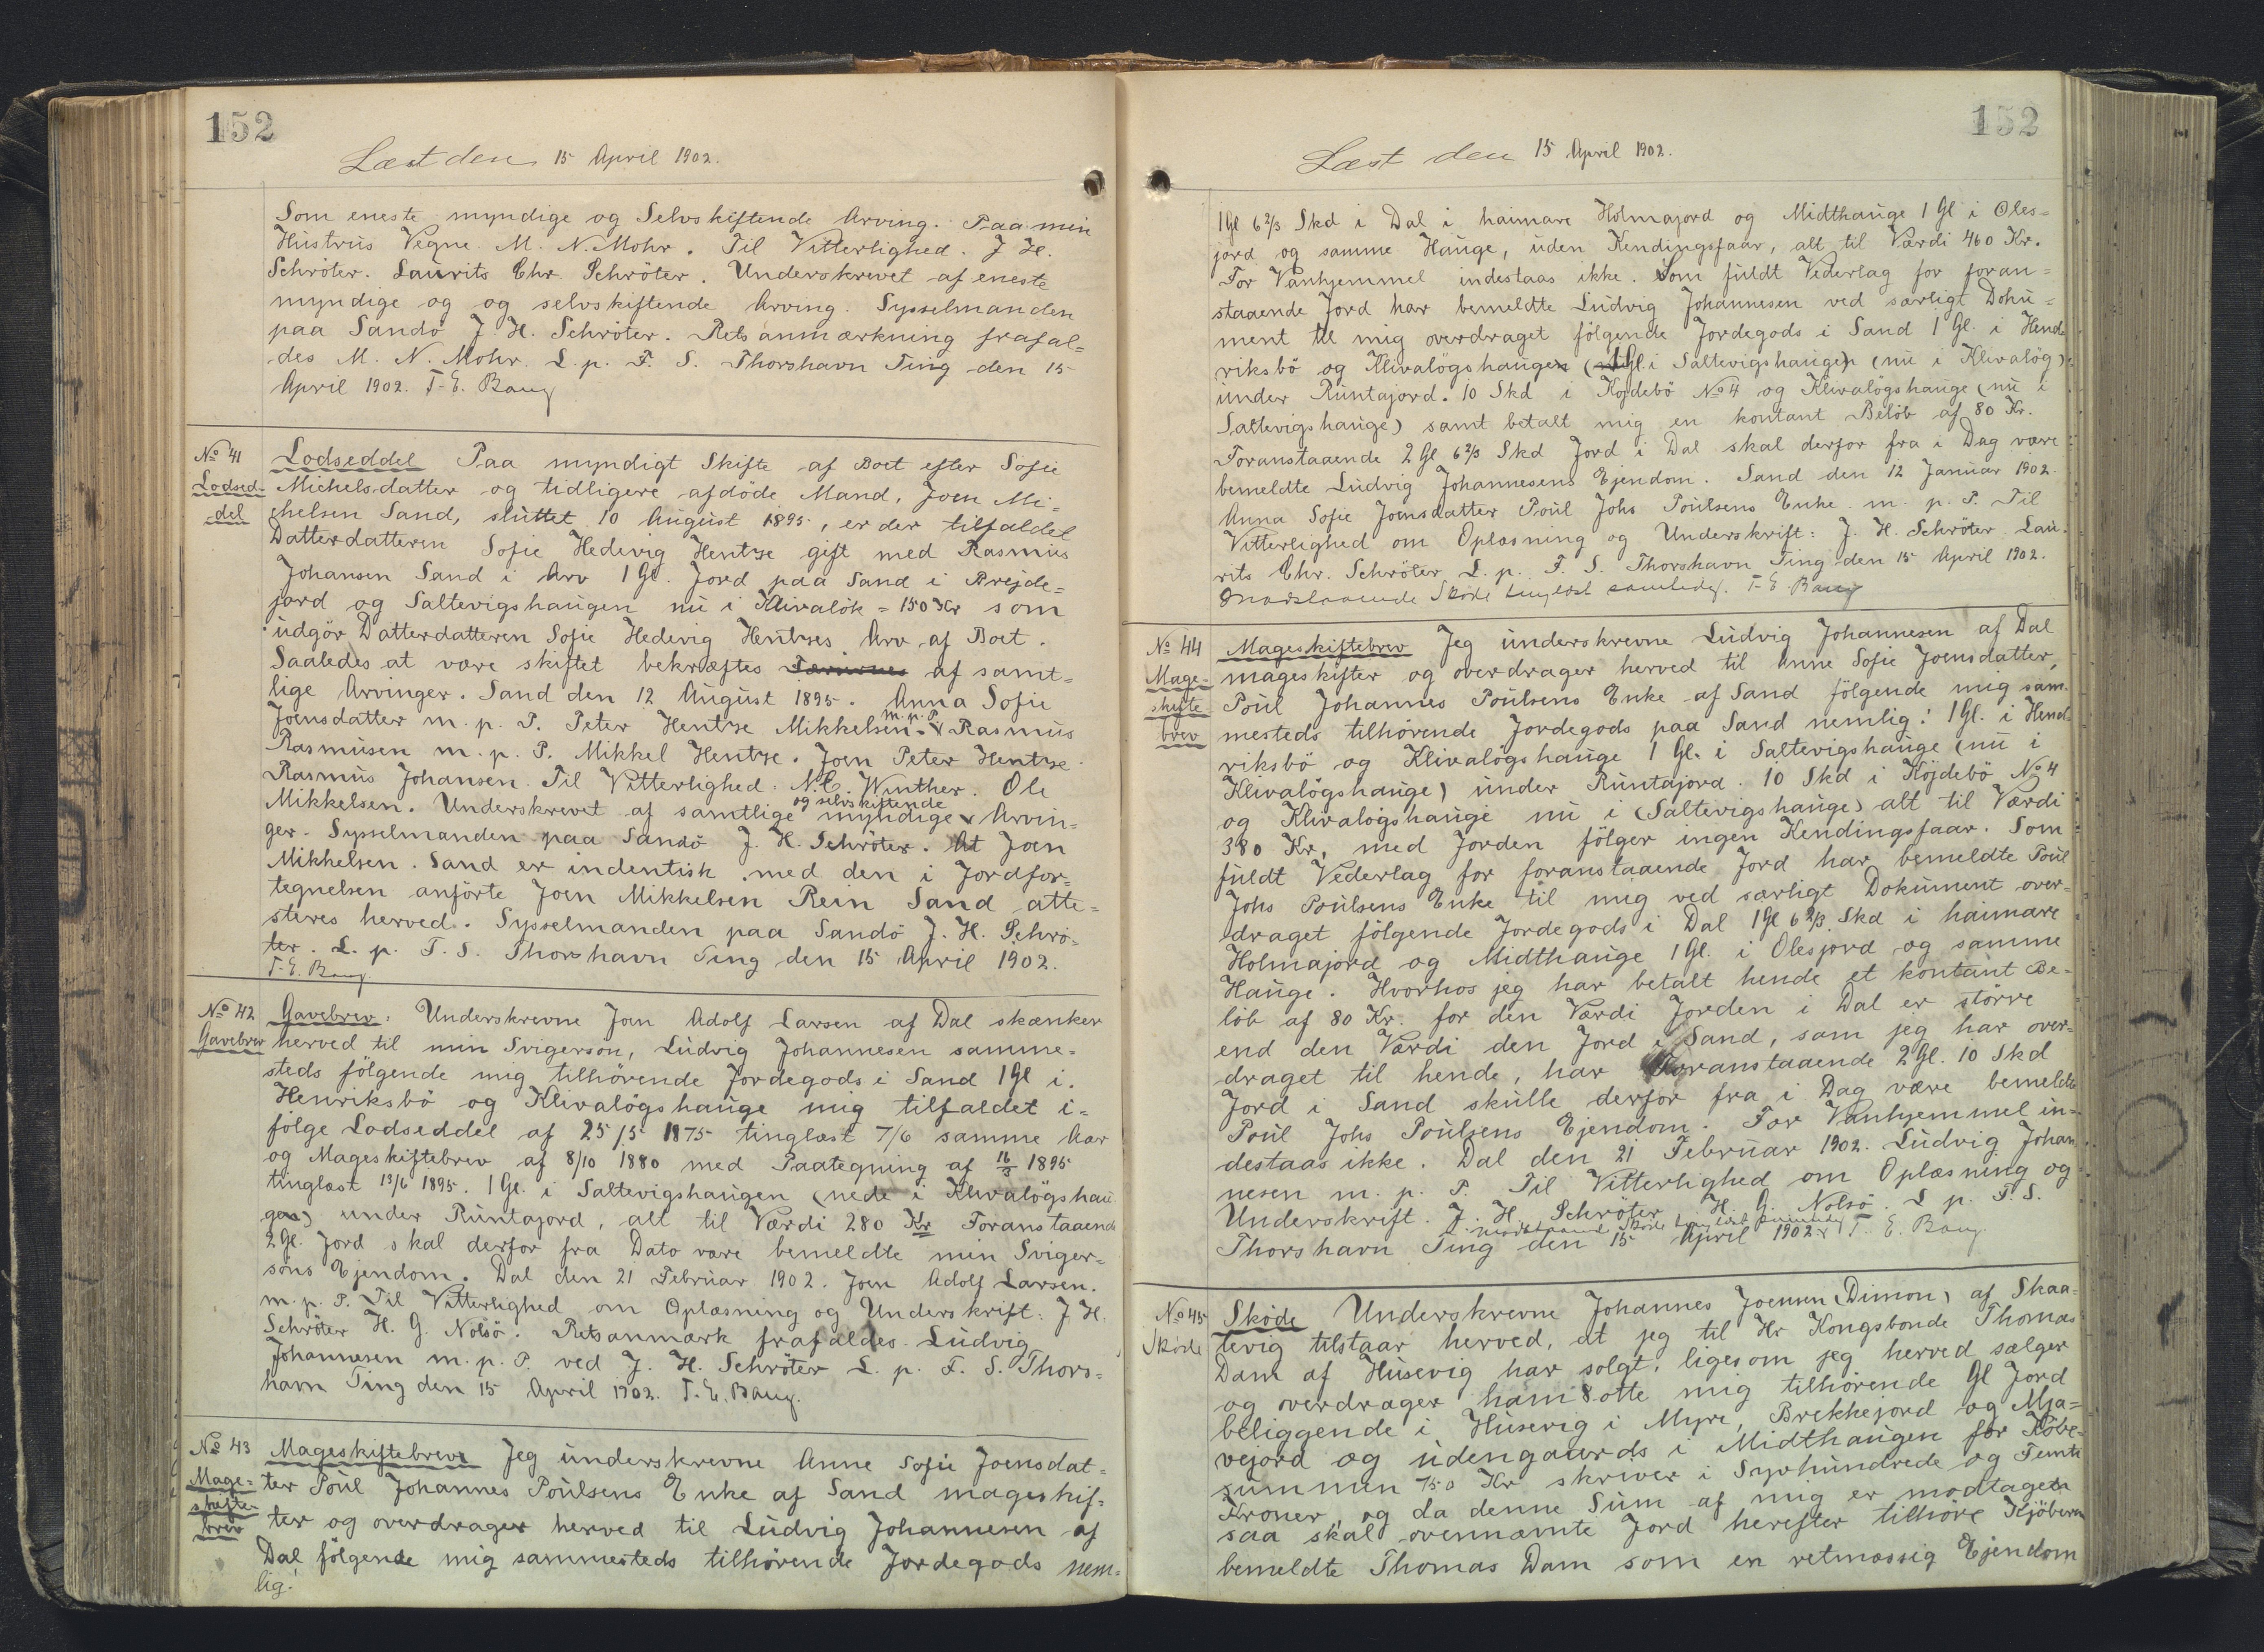 152
Læst den 15 April 1902.
Som eneste myndige og Selvskiftende Arving. Paa min
Hustrus Vegne. M. N. Mohr. Til Vitterlighed. J. H.
Schröter. Laurits Chr Schröter. Underskrevet af eneste
myndige og og selvskiftende Arving. Sysselmanden
paa Sandö J. H. Schröter. Rets anmærkning frafal=
des M. N. Mohr. L. p. F. S. Thorshavn Ting den 15
April 1902. T. E. Bang
No 41
Lodsed-
del
Lodseddel Paa myndigt Skifte af Boet efter Sofie
Michelsdatter og tidligere afdöde Mand, Joen Mi=
chelsen Sand, sluttet 10 August 1895, er der tilfaldet
Datterdatteren Sofie Hedevig Hentze gift med Rasmus
Johansen Sand i Arv 1 Gl. Jord paa Sand i Brejde=
jord og Saltevigshaugen nu i Klivalök = 150 Kr som
udgör Datterdatteren Sofie Hedevig Hentzes Arv af Boet.
Saaledes at være skiftet bekræftes af samt=
lige Arvinger. Sand den 12 August 1895. Anna Sofie
Joensdatter m. p. P. Peter Hentze Mikkelsen m. p. P. Rasmus
Rasmusen m. p. P. Mikkel Hentze. Joen Peter Hentze
Rasmus Johansen. Til Vitterlighed: N. C. Winther. Ole
Mikkelsen. Underskrevet af samtlige myndige og selvskiftende Arvin=
ger. Sysselmanden paa Sandö J. H. Schröter. At Joen
Mikkelsen. Sand er indentisk med den i Jordfor=
tegnelsen anförte Joen Mikkelsen Rein Sand atte=
steres herved. Sysselmanden paa Sandö J. H. Schrö=
ter. L. p. F. S. Thorshavn Ting den 15 April 1902.
T. E. Bang.
No 42
Gavebrev
Gavebrev: Underskrevne Joen Adolf Larsen af Dal skænker
herved til min Svigersön, Ludvig Johannesen samme=
steds fölgende mig tilhörende Jordegods i Sand 1 Gl i
Henriksbö og Klivalögshauge mig tilfaldet i=
fölge Lodseddel af 25/5 1875 tinglæst 7/6 samme Aar
og Mageskiftebrev af 8/10 1880 med Paategning af 16/3 1895
tinglæst 13/6 1895. 1 Gl. i Saltevigshaugen (nede i Klivalögshau
gen) under Runtajord, alt til Værdi 280 Kr Foranstaaende
2 Gl. Jord skal derfor fra Dato være bemeldte min Sviger=
söns Ejendom. Dal den 21 Februar 1902. Joen Adolf Larsen.
m. p. P. Til Vitterlighed om Oplæsning og Underskrift: J. H.
Schröter H. G. Nolsö. Retsanmærk frafaldes. Ludvig
Johannesen m. p. P. ved J. H. Schröter L. p. F. S. Thors=
havn Ting den 15 April 1902. T. E. Bang.
No 43
Mage-
skifte-
brev
Mageskiftebrev Jeg underskrevne Anne Sofie Joensdat=
ter Poul Johannes Poulsens Enke af Sand mageskif=
ter og overdrager herved til Ludvig Johannesen af
Dal fölgende mig sammesteds tilhörende Jordegods nem=
lig:
152
Læst den 15 April 1902.
1 Gl 6 2/3 Skd i Dal i haimare Holmajord og Midthauge 1 Gl i Oles=
jord og samme Hauge, uden Kendingsfaar, alt til Værdi 460 Kr.
For Vanhjemmel indestaas ikke. Som fuldt Vederlag for foran=
staaende Jord har bemeldte Ludvig Johannesen ved særligt Doku=
ment til mig overdraget fölgende Jordegods i Sand 1 Gl. i Hend
riksbö og Klivalögshaugen (1 Gl. i Saltevigshaugen (nu i Klivalög)
under Runtajord. 10 Skd i Kojdebö No 4 og Klivalögshauge (nu i
Saltevigshauge) samt betalt mig en kontant Belöb af 80 Kr.
Foranstaaende 2 Gl 6 2/3 Skd Jord i Dal skal derfor fra i Dag være
bemeldte Ludvig Johannesens Ejendom. Sand den 12 Januar 1902.
Anna Sofie Joensdatter Poul Johs Poulsens Enke m. p. P. Til
Vitterlighed om Oplæsning og Underskrift: J. H. Schröter Lau-
rits Chr. Schröter L. p. F. S. Thorshavn Ting den 15 April 1902.
Skøde tinglæst samtidig. T. E. Bang
No 44
Mage-
skifte-
brev
Mageskiftebrev Jeg underskrevne Ludvig Johannesen af Dal
mageskifter og overdrager herved til Anne Sofie Joensdatter,
Poul Johannes Poulsens Enke af Sand fölgende mig sam-
mesteds tilhörende Jordegods paa Sand nemlig: 1 Gl. i Hend
riksbö og Klivalögshauge 1 Gl. i Saltevigshauge (nu i
Klivalögshauge) under Runtajord. 10 Skd i Köjdebö No 4
og Klivalögshauge nu i (Saltevigshauge) alt til Værdi
380 Kr, med Jorden fölger ingen Kendingsfaar. Som
fuldt Vederlag for foranstaaende Jord har bemeldte Poul
Johs Poulsens Enke til mig ved særligt Dokument over=
draget fölgende Jordegods i Dal 1 Gl 6 2/3 Skd i haimare
Holmajord og Midthauge 1 Gl. i Olesjord og samme
Hauge. Hvorhos jeg har betalt hende et kontant Be-
löb af 80 Kr. for den Værdi Jorden i Dal er större
end den Værdi den Jord i Sand, som jeg har over=
draget til hende, har Foranstaaende 2 Gl. 10 Skd
Jord i Sand skulle derfor fra i Dag være bemeldte
Poul Johs Poulsens Ejendom. For Vanhjemmel in=
destaas ikke. Dal den 21 Februar 1902. Ludvig Johan
nesen m. p. P. Til Vitterlighed om Oplæsning og
Underskrift. J. H. Schröter H. G. Nolsö. L. p. F. S.
Thorshavn Ting den 15 April 1902. T. E. Bang
No 45
Skøde
Skøde Underskrevne Johannes Joensen (Dimon) af Skaa=
levig tilstaar herved, at jeg til Hr Kongsbonde Thomas
Dam af Husevig har solgt, ligesom jeg herved sælger
og overdrager ham 8 otte mig tilhörende Gl Jord
beliggende i Husevig i Myre, Brekkejord og Mja=
vejord og udengaards i Midthaugen for Köbe=
summen 750 Kr skriver i Syvhundrede og Femti
Kroner, og da denne Sum af mig er modtagen
saa skal ovennævnte Jord herefter tilhöre Kjöberen
bemeldte Thomas Dam som en retmæssig Ejendom